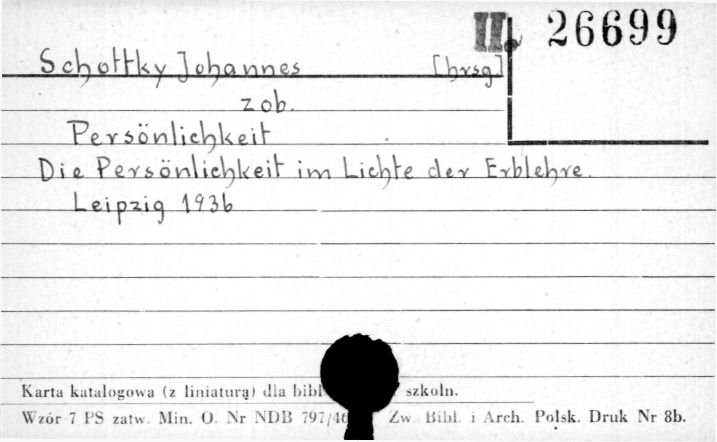 II 26699
Schottky Johannes [hrsg]
zob.
Persönlichkeit
Die Persönlichkeit im Lichte der Erblehre.
Leipzig 1936
Karta katalogowa (z liniaturą) dla szkoln.
Wzór 7 PS zatw. Min. O. Nr NDB Zw. Bibl. i Arch. Polsk. Druk Nr 8b.